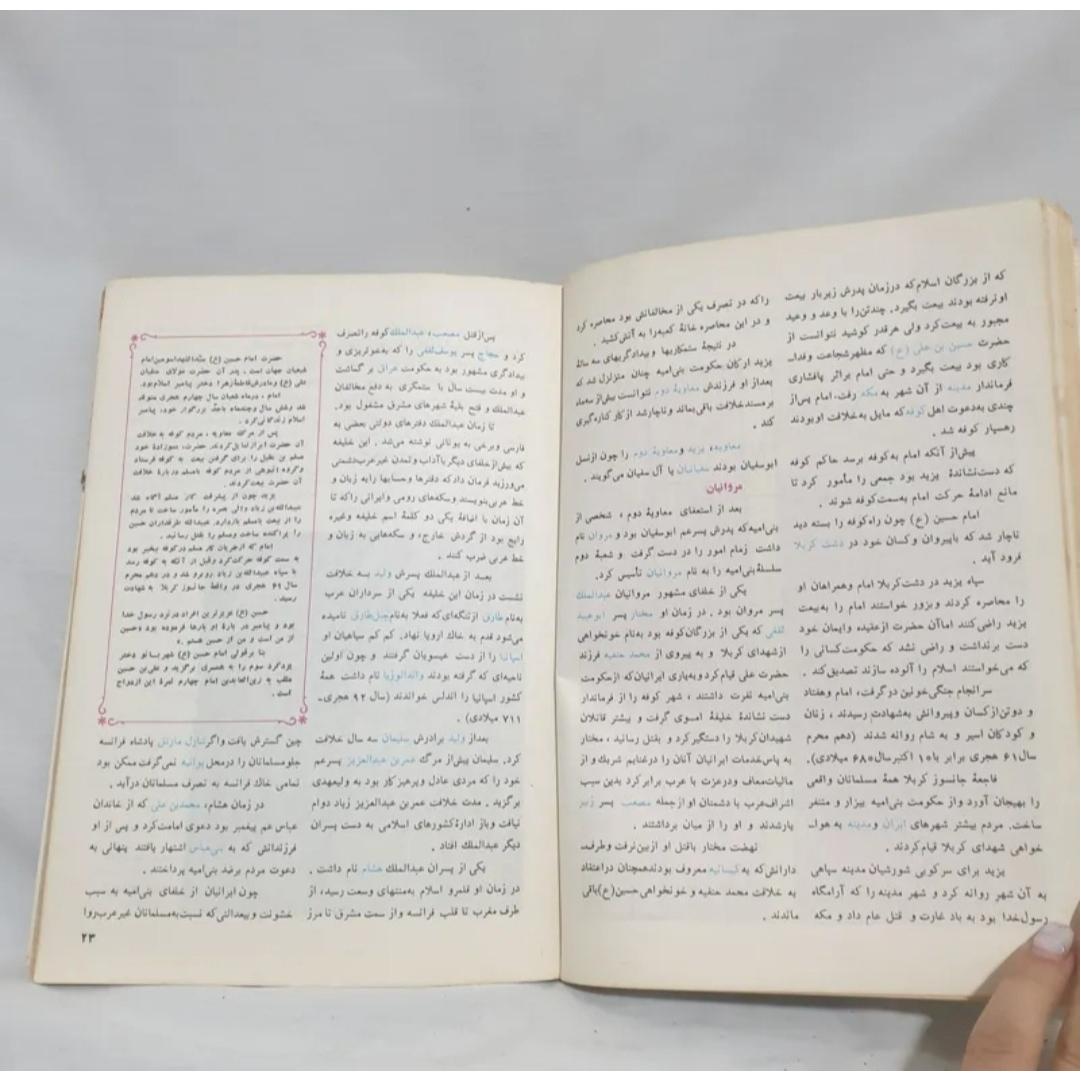 که از بزرگان اسلام‌که درزمان پدرش زیربار بیعت
اونرفته بودند بیعت بگیرد. چندتن‌را با وعد و وعید
مجبور به بیعت‌کرد ولی هرقدر کوشید نتوانست از
حضرت حسین بن علی (ع) که مظهرشجاعت وفدا-
کاری بود بیعت بگیرد و حتی امام براثر پافشاری
فرماندار مدینه از آن شهر به مکه رفت، امام پس‌از
چندی به‌دعوت اهل کوفه‌که مایل به‌خلافت اوبودند
رهسپار کوفه شد .
پیش‌از آنکه امام به‌کوفه برسد حاکم کوفه
که دست‌نشاندهٔ یزید بود جمعی را مأمور کرد تا
مانع ادامهٔ حرکت امام به‌سمت‌کوفه شوند .
امام حسین (ع) چون راه‌کوفه را بسته دید
ناچار شد که باپیروان وکسان خود در دشت کربلا
فرود آید .
سپاه یزید در دشت‌کربلا امام وهمراهان او
را محاصره کردند وبزور خواستند امام را به‌بیعت
یزید راضی‌کنند اماآن حضرت ازعقیده وایمان خود
دست برنداشت و راضی نشد که حکومت‌کسانی را
که می‌خواستند اسلام را آلوده سازند تصدیق‌کند .
سرانجام جنگی‌خونین درگرفت، امام وهفتاد
و دوتن‌ازکسان وپیروانش به‌شهادت رسیدند ، زنان
و کودکان اسیر و به شام روانه شدند (دهم محرم
سال ۶۱ هجری برابر با۱۰ اکتبرسال ۶۸۰ میلادی).
فاجعهٔ جانسوز کربلا همهٔ مسلمانان واقعی
را بهیجان آورد واز حکومت بنی‌امیه بیزار و متنفر
ساخت. مردم بیشتر شهرهای ایران ومدینه به هوا-
خواهی شهدای کربلا قیام کردند .
یزید برای سرکوبی شورشیان مدینه سپاهی
به آن شهر روانه کرد و شهر مدینه را که آرامگاه
رسول‌خدا بود به باد غارت و قتل عام داد و مکه
راکه در تصرف یکی از مخالفانش بود محاصره کرد
و در این محاصره خانهٔ کعبه‌را به آتش‌کشید .
در نتیجهٔ ستمکاریها و بیدادگریهای سه سالهٔ
یزید ارکان حکومت بنی‌امیه چنان متزلزل شد که
بعداز او فرزندش معاویهٔ دوم نتوانست بیش‌از سه‌ماه
برمسندخلافت باقی‌بماند وناچارشد از کار کناره‌گیری
کند .
معاویه، یزید و معاویهٔ دوم را چون ازنسل
ابوسفیان بودند سفیانیان یا آل سفیان می‌گویند .
مروانیان
بعد از استعفای معاویهٔ دوم ، شخصی از
بنی‌امیه‌که پدرش پسرعم ابوسفیان بود و مروان نام
داشت زمام امور را در دست گرفت و شعبهٔ دوم
سلسلهٔ بنی‌امیه را به نام مروانیان تأسیس کرد.
یکی از خلفای مشهور مروانیان عبدالملک
پسر مروان بود . در زمان او مختار پسر ابوعبید
ثقفی که یکی از بزرگان‌کوفه بود به‌نام خونخواهی
ازشهدای کربلا و به پیروی از محمد حنفیه فرزند
حضرت علی قیام‌کرد وبه‌یاری ایرانیان که‌ازحکومت
بنی‌امیه نفرت داشتند ، شهر کوفه را از فرماندار
دست نشاندهٔ خلیفهٔ اموی گرفت و بیشتر قاتلان
شهیدان‌کربلا را دستگیرکرد و بقتل رسانید ، مختار
به پاس‌خدمات ایرانیان آنان را درغنایم شریک و از
مالیات‌معاف ودرعزت با عرب برابرکرد بدین سبب
اشراف‌عرب با دشمنان او ازجمله مصعب پسر زبیر
یارشدند و او را از میان برداشتند .
نهضت مختار باقتل او ازبین‌نرفت وطرف-
دارانش‌که به کیسانیه معروف بودندهمچنان دراعتقاد
به خلافت محمد حنفیه و خونخواهی‌حسین(ع)باقی
ماندند .
پس‌ازقتل مصعب، عبدالملک‌کوفه راتصرف
کرد و حجاج پسر یوسف‌ثقفی را که به‌خونریزی و
بیدادگری مشهور بود به حکومت عراق بر گماشت
و او مدت بیست سال با ستمگری به دفع مخالفان
عبدالملک و فتح بقیهٔ شهرهای مشرق مشغول بود.
تا زمان عبدالملک دفترهای دولتی بعضی به
فارسی وبرخی به یونانی نوشته می‌شد . این خلیفه
که بیش‌ازخلفای دیگر باآداب وتمدن غیرعرب‌دشمنی
می‌ورزید فرمان دادکه دفترها وحسابها رابه زبان و
خط عربی‌بنویسند وسکه‌های رومی وایرانی راکه تا
آن زمان با اضافهٔ یکی دو کلمهٔ اسم خلیفه وغیره
رایج بود از گردش خارج، و سکه‌هایی به زبان و
خط عربی ضرب کنند .
بعد از عبدالملک پسرش ولید به خلافت
نشست در زمان این خلیفه یکی از سرداران عرب
به‌نام طارق ازتنگه‌ای‌که فعلا به‌نام‌جبل‌طارق نامیده
می‌شود قدم به خاک اروپا نهاد. کم کم سپاهیان او
اسپانیا را از دست عیسویان گرفتند و چون اولین
ناحیه‌ای که گرفته بودند واندالوزیا نام داشت همهٔ
کشور اسپانیا را اندلس خواندند (سال ۹۲ هجری-
۷۱۱ میلادی) .
بعداز ولید برادرش سلیمان سه سال خلافت
کرد. سلیمان پیش‌از مرگ عمربن عبدالعزیز پسرعم
خود را که مردی عادل وپرهیزکار بود به ولیعهدی
برگزید . مدت خلافت عمربن عبدالعزیز زیاد دوام
نیافت وباز ادارهٔ‌کشورهای اسلامی به دست پسران
دیگر عبدالملک افتاد .
یکی از پسران عبدالملک هشام نام داشت .
در زمان او قلمرو اسلام به‌منتهای وسعت رسید، از
طرف مغرب تا قلب فرانسه واز سمت مشرق تا مرز
حضرت امام حسین (ع) سیدالشهداسومین‌امام
شیعیان جهان است . پدر آن حضرت مولای متقیان
علی (ع) ومادرش‌فاطمهٔ‌زهرا دختر پیامبر اسلام‌بود.
امام ، درماه شعبان سال چهارم هجری متولد
شد وشش سال وچندماه باجدّ بزرگوار خود، پیامبر
اسلام زندگانی‌کرد .
پس از مرگ معاویه ، مردم کوفه به‌خلافت
آن حضرت ابرازتمایل‌کردند. حضرت، عموزادهٔ خود
مسلم بن عقیل را برای گرفتن بیعت به کوفه فرستاد
وگروه انبوهی از مردم کوفه بامسلم دربارهٔ خلافت
آن حضرت بیعت‌کردند .
یزید چون از پیشرفت کار مسلم آگاه شد
عبیدالله‌بن زیاد والی بصره را مأمور ساخت تا مردم
را از بیعت بامسلم بازدارد. عبیدالله طرفداران حسین
را پراکنده ساخت ومسلم را بقتل رسانید .
امام که ازجریان کار مسلم درکوفه بیخبر بود
به سمت کوفه حرکت‌کرد وقبل از آنکه به کوفه رسد
با سپاه عبیدالله‌بن زیاد روبرو شد و در دهم محرم
سال ۶۱ هجری در واقعهٔ جانسوز کربلا به شهادت
رسید .
حسین (ع) عزیزترین افراد درنزد رسول خدا
بود و پیامبر در بارهٔ او بارها فرموده بود «حسین
از من است و من از حسین هستم .»
بنا برقولی امام حسین (ع) شهربانو دختر
یزدگرد سوم را به همسری برگزید و علی‌بن حسین
ملقب به زین‌العابدین امام چهارم ثمرهٔ این ازدواج
است .
چین گسترش یافت واگر شارل مارتل پادشاه فرانسه
جلومسلمانان را درمحل پواتیه نمی‌گرفت ممکن بود
تمامی خاک فرانسه به تصرف مسلمانان درآید .
در زمان هشام، محمدبن علی که از خاندان
عباس عم پیغمبر بود دعوی امامت‌کرد و پس از او
فرزندانش که به بنی‌عباس اشتهار یافتند پنهانی به
دعوت مردم برضد بنی‌امیه پرداختند .
چون ایرانیان از خلفای بنی‌امیه به سبب
خشونت و بیعدالتی‌که نسبت‌به‌مسلمانان غیرعرب‌روا
۲۳